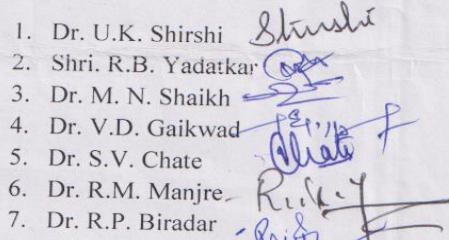 1. Dr. U.K. Shirshi Shirshi
2. Shri. R.B. Yadatkar
3. Dr. M. N. Shaikh
4. Dr. V.D. Gaikwad
5. Dr. S.V. Chate Chate
6. Dr. R.M. Manjre
7. Dr. R.P. Biradar